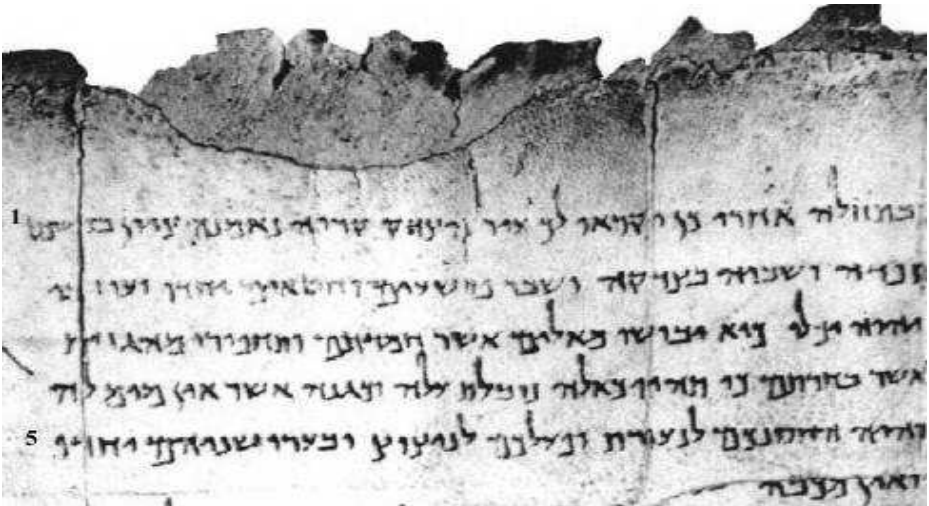 1 כבתחלה אחרי כן יקראו לך עיר הצדק קריה נאמנה ציון במשפט
תפדה ושביה בצדקה ושבר פושעים וחטאים יחדו ועוזבי
יהוה יכלו כיא יבושו מאלים אשר חמדתם ותחפרו מהגנות
אשר בחרתם כי תהיו כאלה נובלת עלה וכגנה אשר אין מים לה
5 והיה החסנכם לנעורת ופעלכם לניצוץ ובערו שניהם יחדיו
ואין מכבה